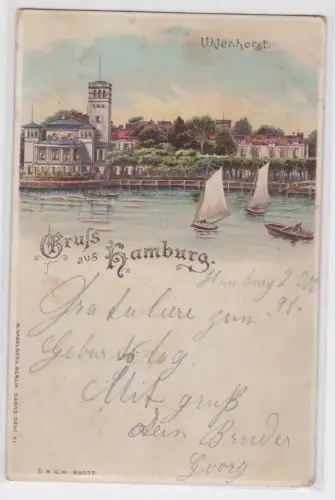 Uhlenhorst.
Gruss
aus
Hamburg.
Hamburg 2
98.
Gratuliere zum
Geburtstag
Mit gruß
dein Bruder
Georg
D.R.G.M. 88077.